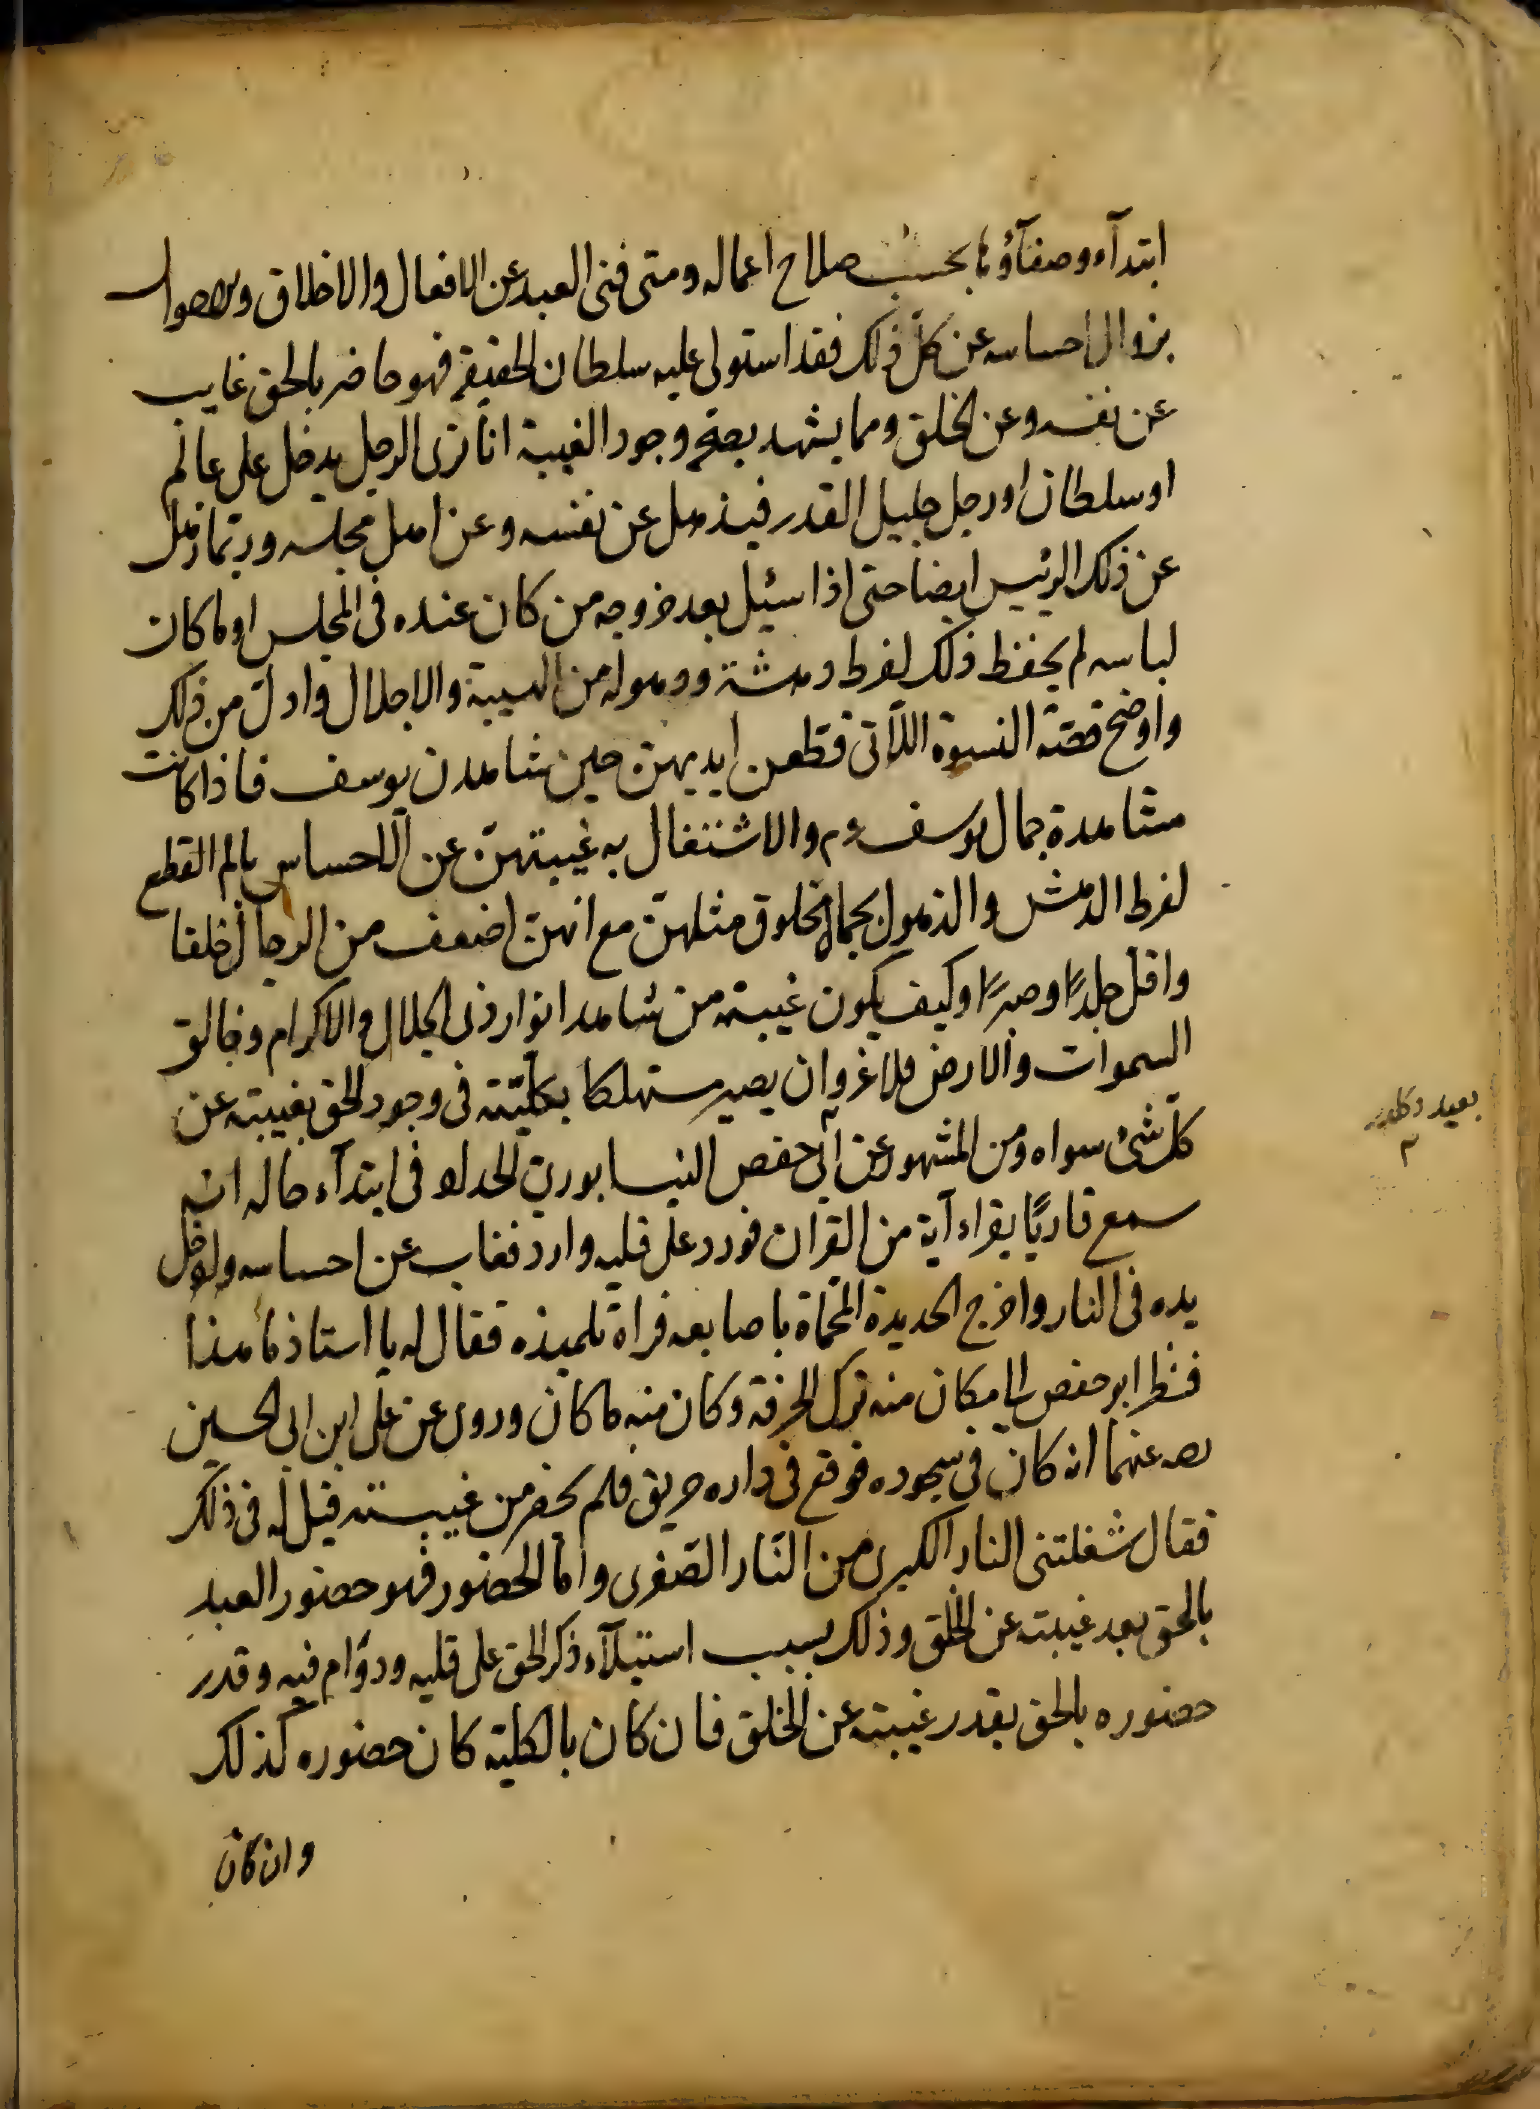 ابتدآء وصفآؤها بحسب صلاح اعماله ومتى فنى العبد عن الافعال والاخلاق والاحوال
بزوال احساسه عن كل ذلك فقد استولى عليه سلطان الحقيقة فهو حاضر بالحق غايب
عن نفسه وعن الخلق ومما يشهد بصحة وجود الغيبة انا نرى الرجل يدخل على عالم
او سلطان او رجل جليل القدر فيذهل عن نفسه وعن اهل مجلسه وربما ذهل
عن ذلك الرئيس ايضا حتى اذا سئيل بعد خروجه من كان عنده فى المجلس او ما كان
لباسه لم يحفظ ذلك لفرط دهشة وذهوله من الهيبة والاجلال وادل من ذلك
واوضح قصة النسوة اللآتى قطعن ايديهن حين شاهدن يوسف فاذا كانت
مشاهدة جمال يوسف ءم والاشتغال به غيبتهن عن الاحساس بالم القطع
لفرط الدهش والذهول بجمال مخلوق مثلهن مع انهن اضعف من الرجال خلقا
واقل جلدًا وصبرًا وكيف يكون غيبة من شاهد انوار ذى الجلال والاكرام وخالق
السموات والارض فلا غرو ان يصير مستهلكا بكليته فى وجود الحق بغيبته عن
كل شئ سواه ومن المشهور عن ابى حفص النيسابورى الحداد فى ابتدآء حاله انه
سمع قاريًا يقراء آية من القرآن فورد على قلبه وارد فغاب عن احساسه وادخل
يده فى النار واخرج الحديدة المحماة باصابعه فراه تلميذه فقال له يا استاذ ما هذا
فنظر ابو حفص الى ما كان منه ترك الحرفة وكان منه ما كان وروى عن على ابن ابى الحسين
رضه عنهما انه كان فى سجوده فوقع فى داره حريق فلم يحضر من غيبته فقيل له فى ذلك
فقال شغلتنى النار الكبرى من النار الصغرى واما الحضور فهو حضور العبد
بالحق بعد غيبته عن الخلق وذلك بسبب استيلآء ذكر الحق على قلبه ودوام فيه وقدر
حضوره بالحق بقدر غيبته عن الخلق فان كان بالكلية كان حضوره كذلك
وان كان